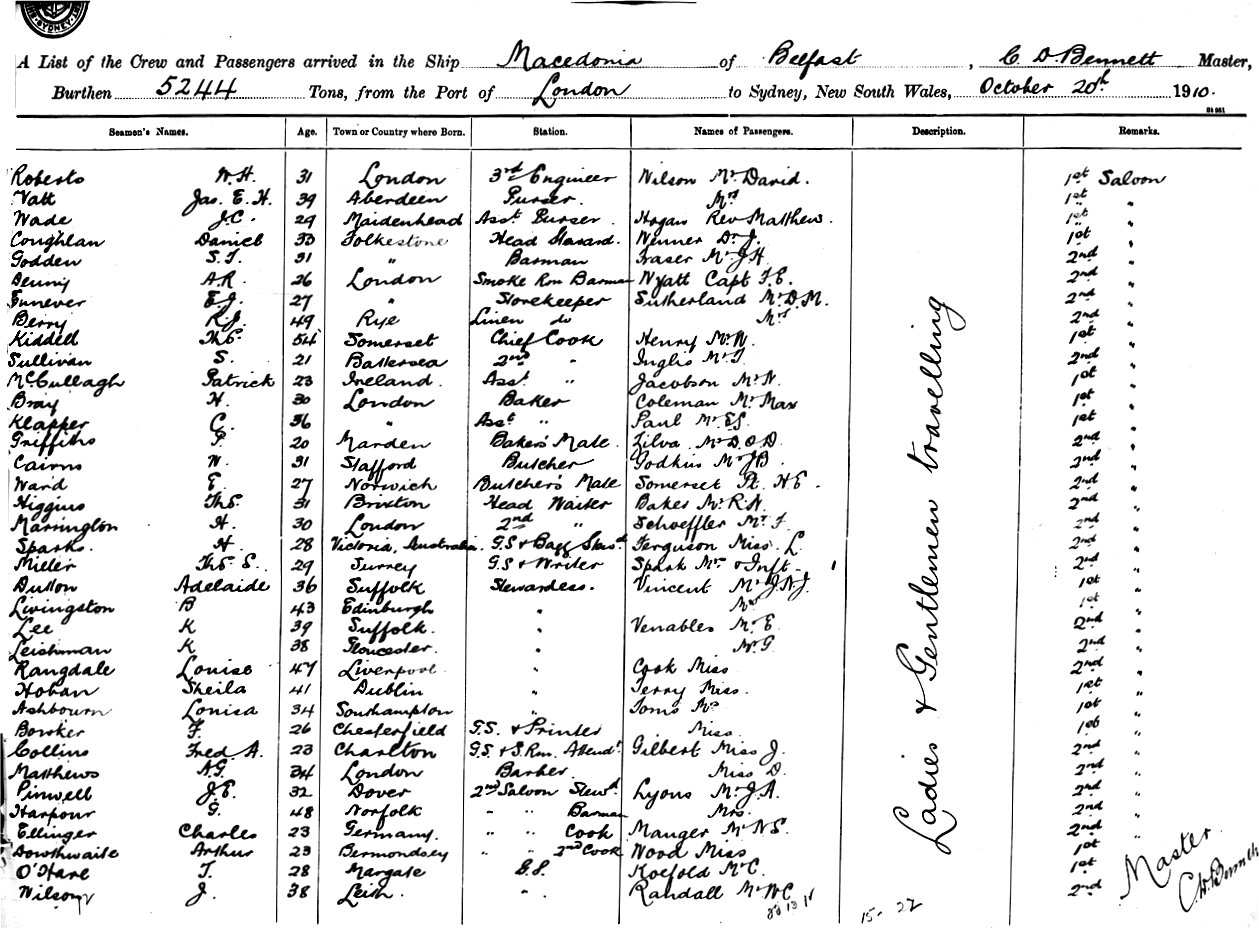 SYDNEY
A List of the Crew and Passengers arrived in the Ship Macedonia of Belfast, C. D. Bennett Master,
Burthen 5244 Tons, from the Port of London to Sydney, New South Wales, October 20th 1910.
Seamen's Names. Age. Town or Country where Born. Station. Names of Passengers. Description. Remarks.
Roberts W.H. 31 London 3rd Engineer Wilson Mr David. 1st Saloon
Vatt Jas. E. H. 39 Aberdeen Purser. Mrs 1st "
Wade J.C. 29 Maidenhead Asst Purser. Hogan Rev Matthew. 1st "
Coughlan Daniel 33 Folkestone Head Steward. Wenner Dr J. 1st "
Godden S.T. 31 " Barman Fraser Mr J.H. 2nd "
Denny A.R. 26 London Smoke Rm Barman Wyatt Capt F.E. 2nd "
Funever E.J. 27 " Storekeeper Sutherland Mr D.M. 2nd "
Berry R.J. 49 Rye Linen do Mrs 2nd "
Kiddell Thos. 54 Somerset Chief Cook Henry Mr W. 1st "
Sullivan S. 21 Battersea 2nd " Inglis Mr T. 2nd "
McCullagh Patrick 23 Ireland. Asst " Jacobson Mr N. 1st "
Bray H. 30 London Baker Coleman Mr Max 1st "
Klapper C. 36 " Asst " Paul Mr E.S. 1st "
Griffiths P. 20 Marden Bakers Mate. Zilva Mr D.O.D. 2nd "
Cairns W. 31 Stafford Butcher Godkin Mr J.B. 2nd "
Ward E. 27 Norwich Butchers Mate Somerset Pt. H.E. 2nd "
Higgins Thos. 31 Brixton Head Waiter Baker Mr R.N. 2nd "
Marrington H. 30 London 2nd " Schoeffler Mr F. 2nd "
Sparks. H. 28 Victoria, Australia. G.S & Bagg Stewd Ferguson Miss L. 2nd "
Miller Thos S. 29 Surrey G.S & Writer Spark Mrs & Inft. 1 2nd "
Dutton Adelaide 36 Suffolk Stewardess. Vincent Mr J.N.J. 1st "
Livingston B 43 Edinburgh " Mrs 1st "
Lee K 39 Suffolk. " Venables Mr E. 2nd "
Leishman K 38 Gloucester. " Mr G 2nd "
Rangdale Louise 47 Liverpool. " Cook Miss 2nd "
Hoban Sheila 41 Dublin " Terry Miss. 1st "
Ashbourn Louisa 34 Southampton " Toms Mrs 1st "
Bowker F. 26 Chesterfield G.S. & Printer Miss. 1st "
Collins Fred. A. 23 Charlton G.S & S.Rm. Attendt. Gilbert Miss J. 2nd "
Matthews A.G. 34 London Barber. Miss D. 2nd "
Pinwell J.E. 32 Dover 2nd Saloon Stewd. Lyons Mr J.A. 2nd "
Harpour G. 48 Norfolk " " Barman Mrs. 2nd "
Ellinger Charles 23 Germany. " " Cook Manger Mr N.S. 2nd "
Dowthwaite Arthur 23 Bermondsey " " 2nd Cook Wood Miss 1st "
O'Hare T. 28 Margate G.S. Koefold Mr C. 1st "
Wilson J. 38 Leith. " Randall Mr W.C. 2nd "
Ladies & Gentlemen travelling
Master
C.D. Bennett
15 - 22